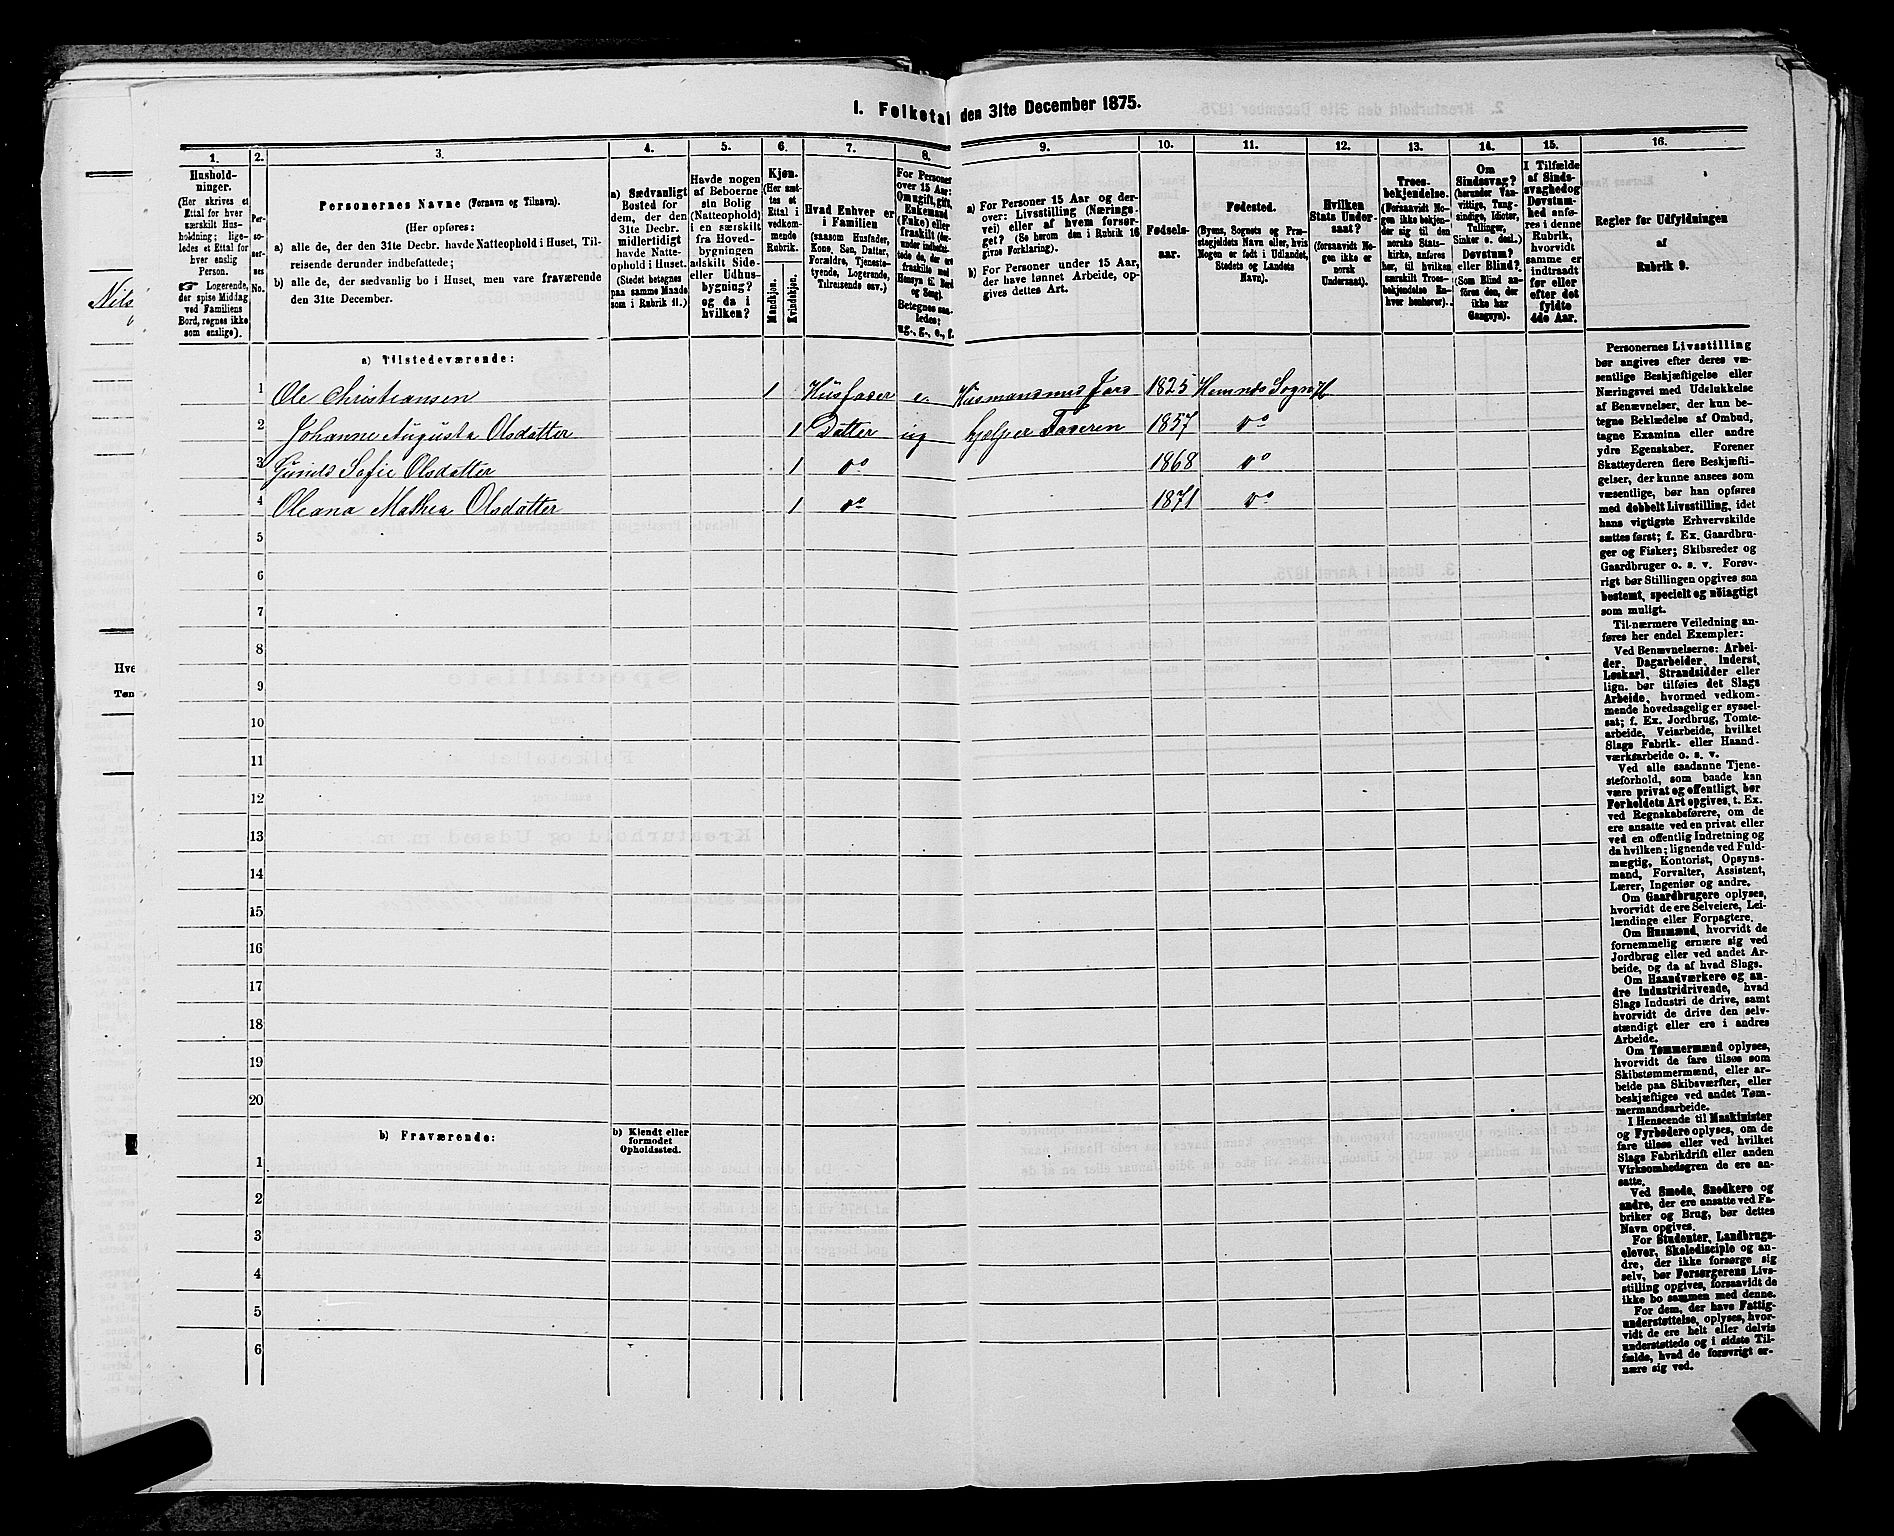 1. Folketal den 31te December 1875.
1.
Hushold-
ninger.
(Her skrives et
Ettal for hver
særskilt Hus-
holdning; lige-
ledes et Ettal for
hver enslig
Person.
☛ Logerende,
der spise Middag
ved Familiens
Bord, regnes ikke
som enslige).
2.
Per-
so-
ner-
nes
No.
3.
Personernes Navne (Fornavn og Tilnavn).
(Her opføres:
a) alle de, der den 31te Decbr. havde Natteophold i Huset, Til-
reisende derunder indbefattede;
b) alle de, der sædvanlig bo i Huset, men vare fraværende
den 31te December.
4.
a) Sædvanligt
Bosted for
dem, der den
31te Decbr.
midlertidigt
havde Natte-
ophold i Huset.
(Stedet betegnes
paa samme Maade
som i Rubrik 11.)
5.
Havde nogen
af Beboerne
sin Bolig
(Natteophold)
i en særskilt
fra Hoved-
bygningen
adskilt Side-
eller Udhus-
bygning?
og da i
hvilken?
6.
Kjøn.
(Her sæt-
tes et
Ettal i
vedkom-
mende
Rubrik.
Mandkjøn.
Kvindekjøn.
7.
Hvad Enhver er
i Familien
(saasom Husfader,
Kone, Søn, Datter,
Forældre, Tjeneste-
tyende, Logerende,
Tilreisende osv.)
8.
For Personer
over 15 Aar:
Om ugift, gift,
Enkemand
(Enke) eller
fraskilt (der-
under indbefat-
tede de, der ere
fraskilte med
Hensyn til Bord
og Seng).
Betegnes saa-
ledes:
ug., g., e., f.
9.
a) For Personer 15 Aar og der-
over: Livsstilling (Nærings-
vei) eller af hvem forsør-
get? (Se herom den i Rubrik 16
givne Forklaring).
b) For Personer under 15 Aar,
der have lønnet Arbeide, op-
gives dettes Art.
10.
Fødsels-
aar.
11.
Fødested.
(Byens, Sognets og Præ-
stegjeldets Navn eller, hvis
Nogen er født i Udlandet,
Stedets og Landets
Navn).
12.
Hvilken
Stats Under-
saat?
(forsaavidt No-
gen ikke er
norsk
Undersaat).
13.
Troes-
bekjendelse.
(Forsaavidt No-
gen ikke bekjen-
der sig til den
norske Stats-
kirke, anføres
her, til hvilken
særskilt Troes-
bekjendelse En-
hver henhører).
14.
Om
Sindssvag?
(herunder Van-
vittige, Tung-
sindige, Idioter,
Tullinger,
Sinker o. desl.)
Døvstum?
eller Blind?
(Som Blind an-
føres den, der
ikke har
Gangsyn).
15.
I Tilfælde
af Sinds-
svaghed og
Døvstum-
hed anfø-
res i denne
Rubrik,
hvorvidt
samme er
indtraadt
før eller
efter det
fyldte
4de Aar.
16.
Regler for Udfyldningen
af
Rubrik 9.
a) Tilstedeværende:
1 Ole Christiansen 1 Husfader e. Husmand med Jord 1825 Hemnds Sogn
2 Johanne Augusta Olsdatter 1 Datter ug hjelper Faderen 1857 do
3 Gunda Sofie Olsdatter 1 do 1868 do
4 Oleana Mathea Olsdatter 1 do 1871 do
5
6
7
8
9
10
11
12
13
14
15
16
17
18
19
20
b) Fraværende:
b) Kjendt eller
formodet
Opholdssted.
1
2
3
4
5
6
Personernes Livsstilling
bør angives efter deres væ-
sentlige Beskjæftigelse eller
Næringsvei med Udelukkelse
af Benævnelser, der kun be-
tegne Beklædelse af Ombud,
tagne Examina eller andre
ydre Egenskaber. Forener
Skatteyderen flere Beskjæfti-
gelser, der kunne ansees som
væsentlige, bør han opføres
med dobbelt Livsstilling, idet
hans vigtigste Erhvervskilde
sættes først; f. Ex. Gaardbru-
ger og Fisker; Skibsreder og
Gaardbruger o. s. v. Forøv-
rigt bør Stillingen opgives saa
bestemt, specielt og nøiagtigt
som muligt.
Til nærmere Veiledning an-
føres her endel Exempler:
Ved Benævnelserne: Arbei-
der, Dagarbeider, Inderst,
Løskarl, Strandsidder eller
lign. bør tilføies det Slags
Arbeide, hvormed vedkom-
mende hovedsagelig er syssel-
sat; f. Ex. Jordbrug, Tomte-
arbeide, Veiarbeide, hvilket
Slags Fabrik- eller Haand-
værksarbeide o. s. v.
Ved alle saadanne Tjene-
steforhold, som baade kan
være privat og offentligt, bør
Forholdets Art opgives, t. Ex.
ved Regnskabsførere, om de
ere ansatte ved en privat eller
ved en offentlig Indretning og
da hvilken; lignende ved Fuld-
mægtig, Kontorist, Opsyns-
mand, Forvalter, Assistent,
Lærer, Ingeniør og andre.
Om Gaardbrugere oplyses,
hvorvidt de ere Selveiere, Lei-
lændinge eller Forpagtere.
Om Husmænd, hvorvidt de
fornemmelig ernære sig ved
Jordbrug eller ved andet Ar-
beide, og da af hvad Slags.
Om Haandværkere og an-
dre Industridrivende, hvad
Slags Industri de drive, samt
hvorvidt de drive den selv-
stændigt eller ere i andres
Arbeide.
Om Tømmermænd oplyses,
hvorvidt de fare tilsøs som
Skibstømmermænd, eller ar-
beide paa Skibsværfter, eller
beskjæftiges ved andet Tøm-
mermandsarbeide.
I Henseende til Maskinister
og Fyrbødere oplyses, om de
fare tilsøs eller ved hvilket
Slags Fabrikdrift eller anden
Virksomhedsgren de ere an-
satte.
Ved Smede, Snedkere og
andre, der ere ansatte ved Fa-
briker og Brug, bør dettes
Navn opgives.
For Studenter, Landbrugs-
elever, Skoledisciple og an-
dre, der ikke forsørge sig
selv, bør Forsørgerens Livs-
stilling opgives, forsaavidt de
ikke bo sammen med denne.
For dem, der have Fattig-
understøttelse, oplyses, hvor-
vidt de ere helt eller delvis
understøttede og i sidste Til-
fælde, hvad de forøvrigt er-
nære sig ved.